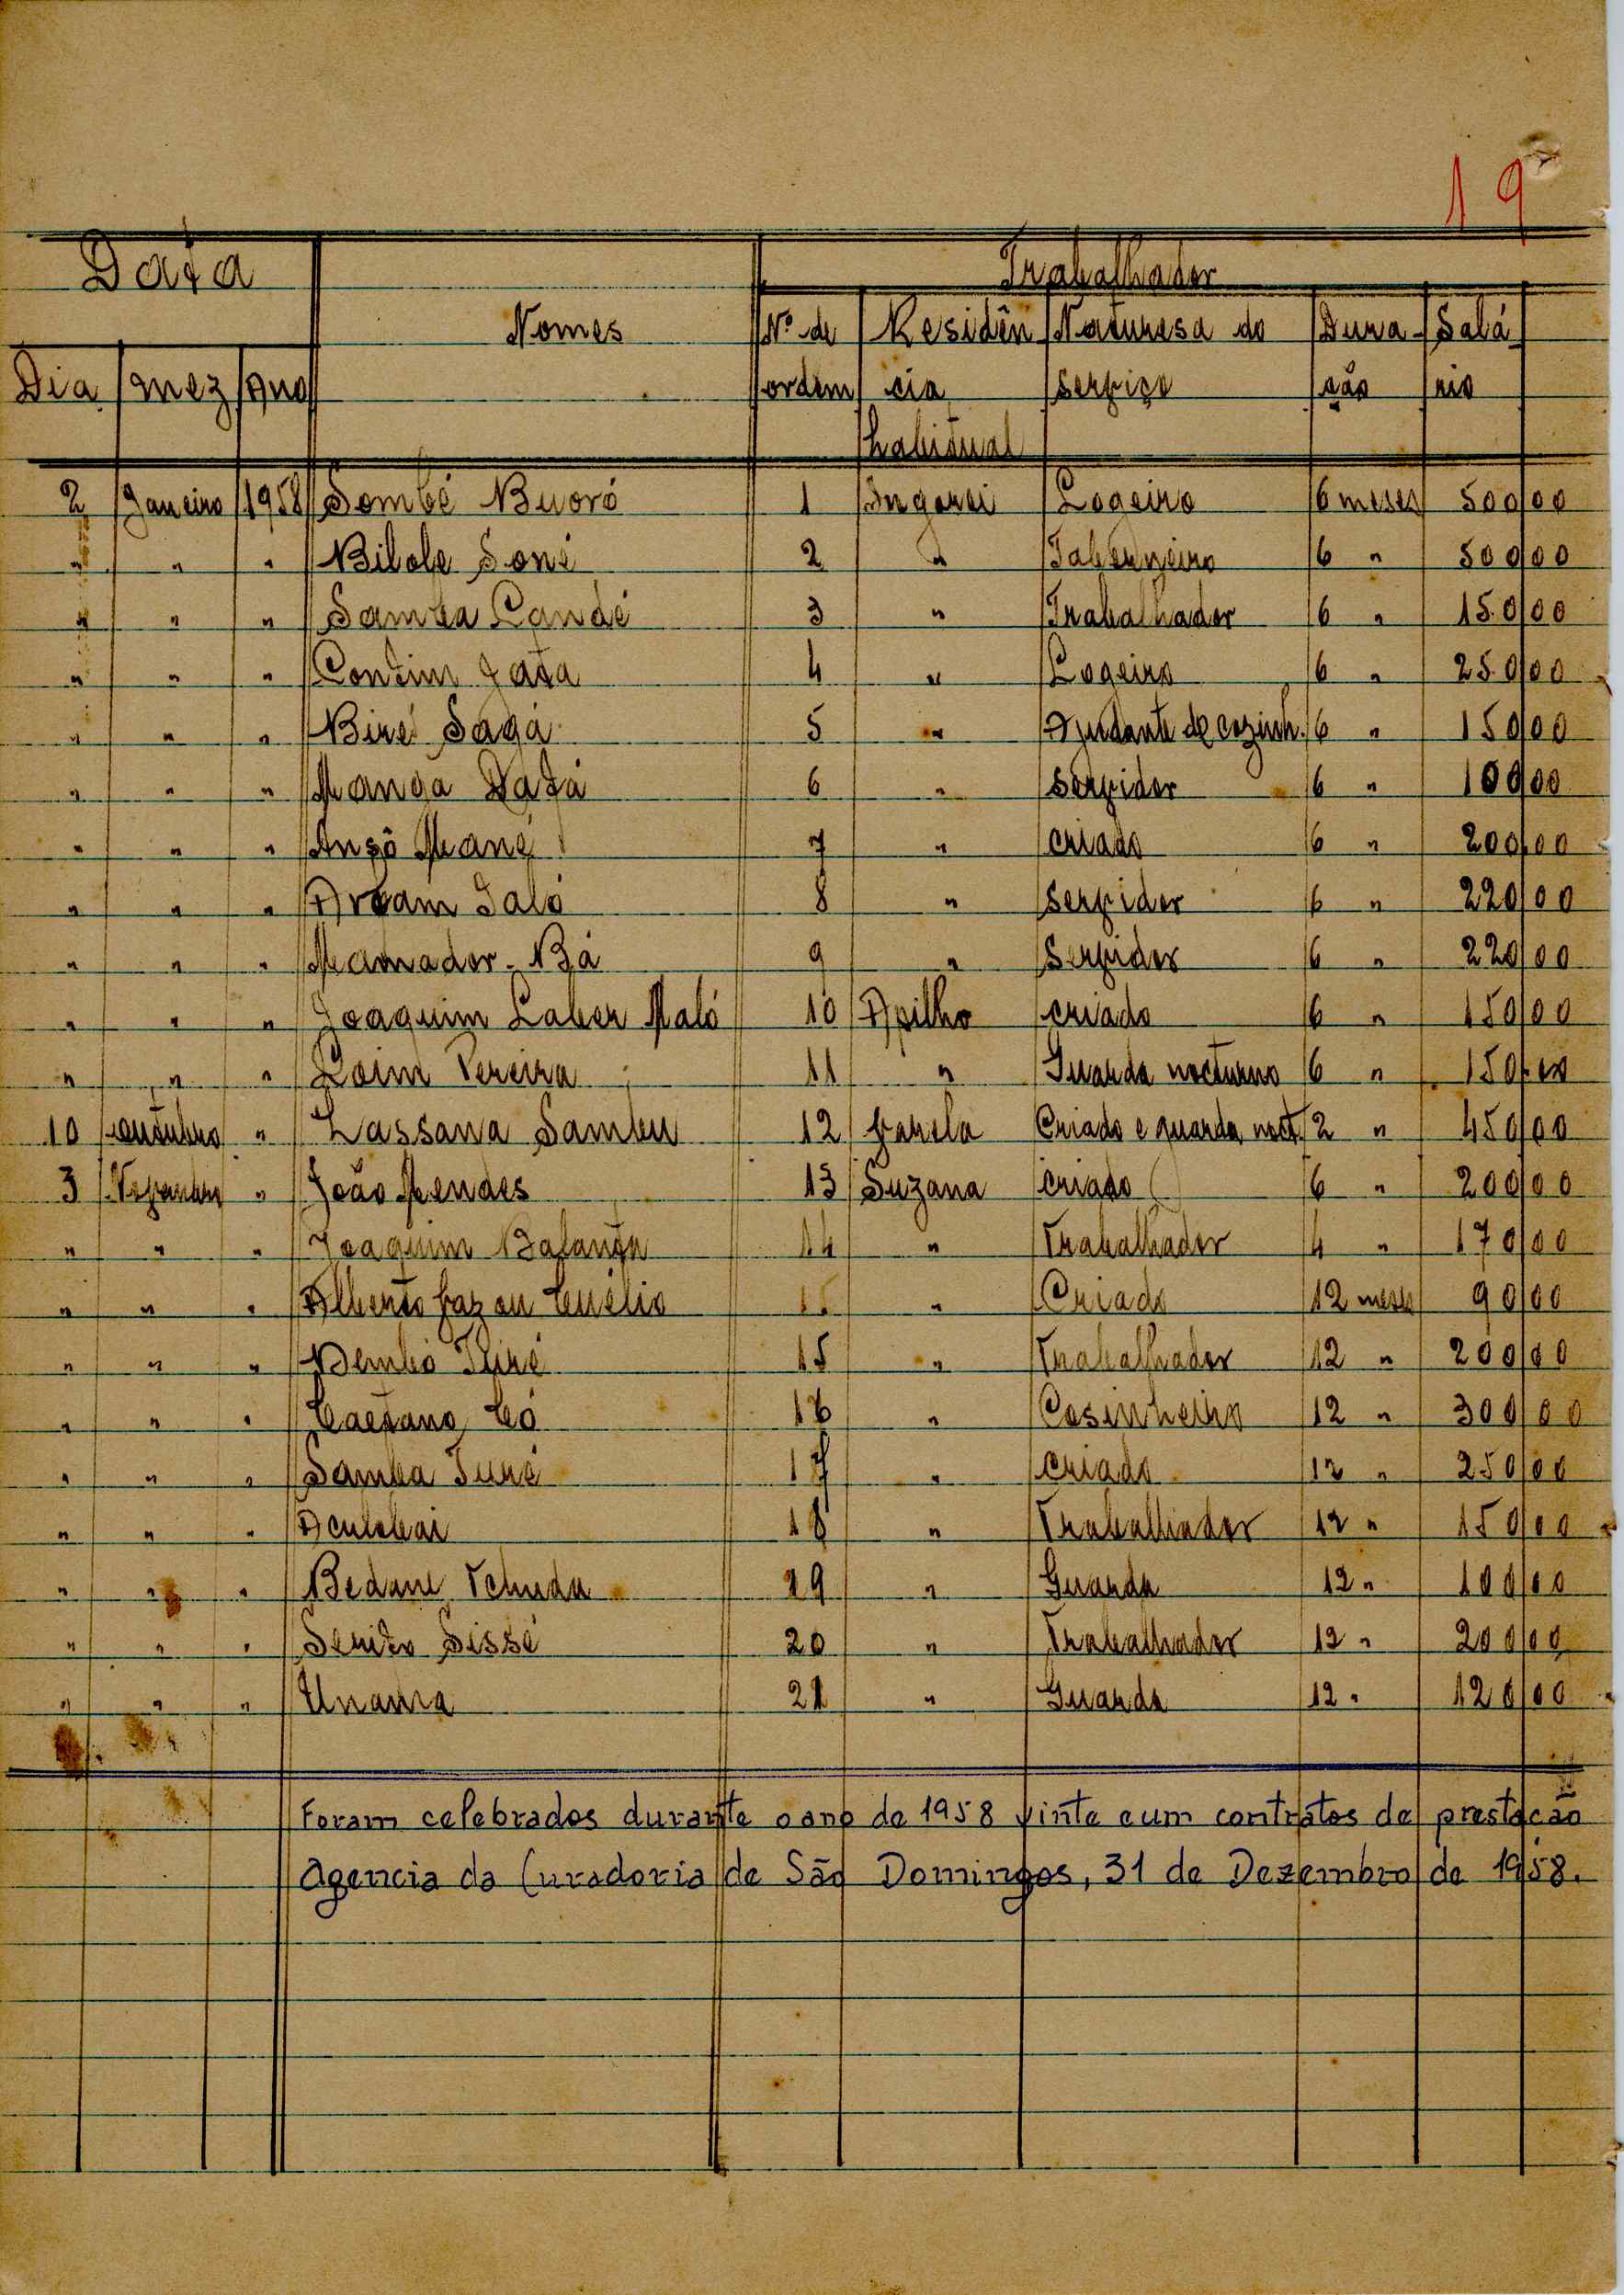 19
Data Trabalhador
Nomes Nº de Residên Naturesa do Dura- Salá
Dia mez Ano ordem cia serviço ção rio
habitual
2 Janeiro 1958 Sombé Buoró 1 Ingorei Logeiro 6 meses 500 00
" " " Bilole Soné 2 " Taberneiro 6 " 500 00
" " " Samba Candé 3 " Trabalhador 6 " 150 00
" " " Contim Jata 4 " Logeiro 6 " 250 00
" " " Biré Sagá 5 " Ajudante de cozinh. 6 " 150 00
" " " Manga Dafá 6 " servidor 6 " 100 00
" " " Ansô Mané 7 " criado 6 " 200 00
" " " Aroam Jaló 8 " servidor 6 " 220 00
" " " Mamador Bá 9 " servidor 6 " 220 00
" " " Joaquim Laber Maló 10 Apilho criado 6 " 150 00
" " " Loim Pereira 11 " Guarda nocturno 6 " 150 00
10 outubro " Lassana Sambu 12 Varela Criado e guarda noct. 2 " 450 00
3 Novembro " João Mendes 13 Suzana criado 6 " 200 00
" " " Joaquim Balanta 14 " Trabalhador 4 " 170 00
" " " Alberto " Criado 12 meses 90 00
" " " Dembó Turé 15 " Trabalhador 12 " 200 00
" " " Caetano Có 16 " Cosinheiro 12 " 300 00
" " " Samba Turé 17 " criado 12 " 250 00
" " " Aculebai 18 " Trabalhador 12 " 150 00
" " " Bedane Tchuda 19 " Guarda 12 " 100 00
" " " Serito Sissé 20 " Trabalhador 12 " 200 00
" " " Unama 21 " Guarda 12 " 120 00
Foram celebrados durante o ano de 1958 vinte e um contratos de prestação
Agencia da Curadoria de São Domingos, 31 de Dezembro de 1958.